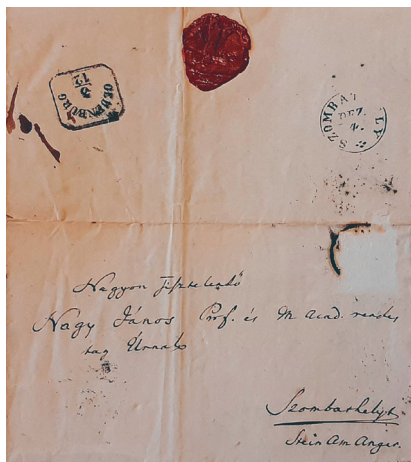 OEDENBURG
3/12
SZOMBATHELY
DEZ. 4.
Nagyon Tisztelendő
Nagy János Prof. és M acad. rendes
tag Úrnak
Szombathelyt
Stein Am Anger.